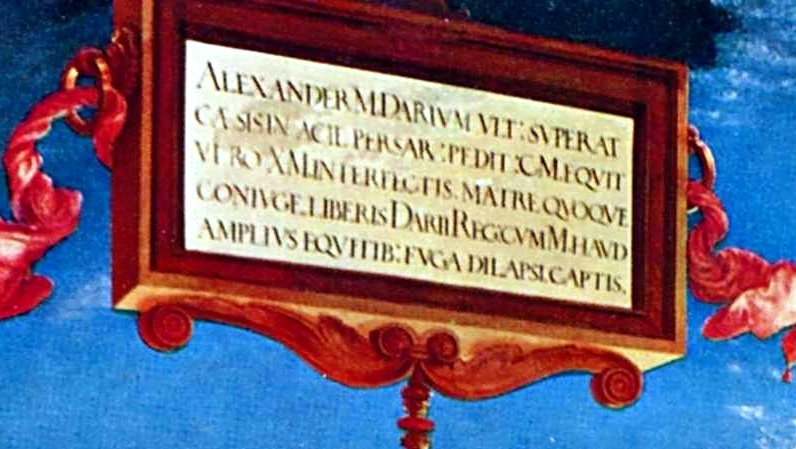 ALEXANDER M. DARIVM VLT: SVPERAT
CÆSIS IN ACIE PERSAR: PEDIT: C M. EQVIT
VERO X M INTERFECTIS. MATRE QVOQVE
CONIVGE, LIBERIS DARII REG: CVM M. HAVD
AMPLIVS EQVITIB: FVGA DILAPSI, CAPTIS.